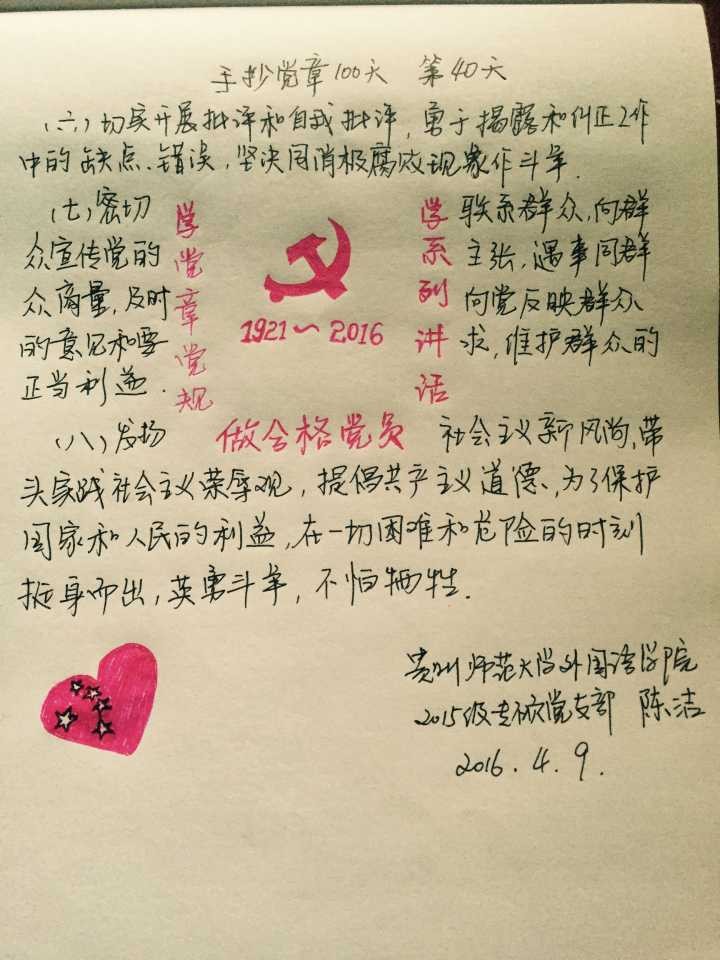 手抄党章100天 第40天
(六)切实开展批评和自我批评,勇于揭露和纠正工作
中的缺点、错误,坚决同消极腐败现象作斗争.
(七)密切 联系群众,向群
众宣传党的 主张,遇事同群
众商量,及时 向党反映群众
的意见和要 求,维护群众的
正当利益.
学党章党规
1921~2016
学系列讲话
做合格党员
(八)发扬 社会主义新风尚,带
头实践社会主义荣辱观,提倡共产主义道德,为了保护
国家和人民的利益,在一切困难和危险的时刻
挺身而出,英勇斗争,不怕牺牲.
贵州师范大学外国语学院
2015级专硕党支部 陈洁
2016.4.9.